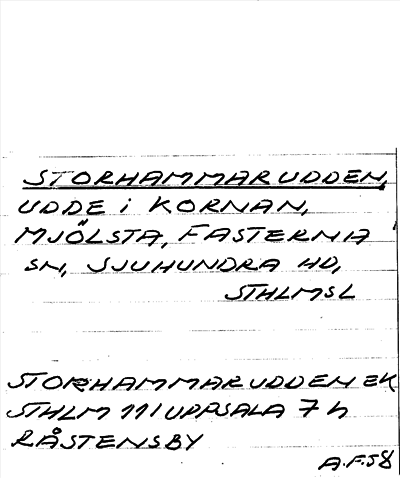 STORHAMMARUDDEN,
UDDE i KORNAN,
MJÖLSTA, FASTERNA
SN, SJUHUNDRA HD,
STHLMSL
STORHAMMARUDDEN EK
STHLM 111 UPPSALA 7 h
RÅSTENSBY
A.F.58